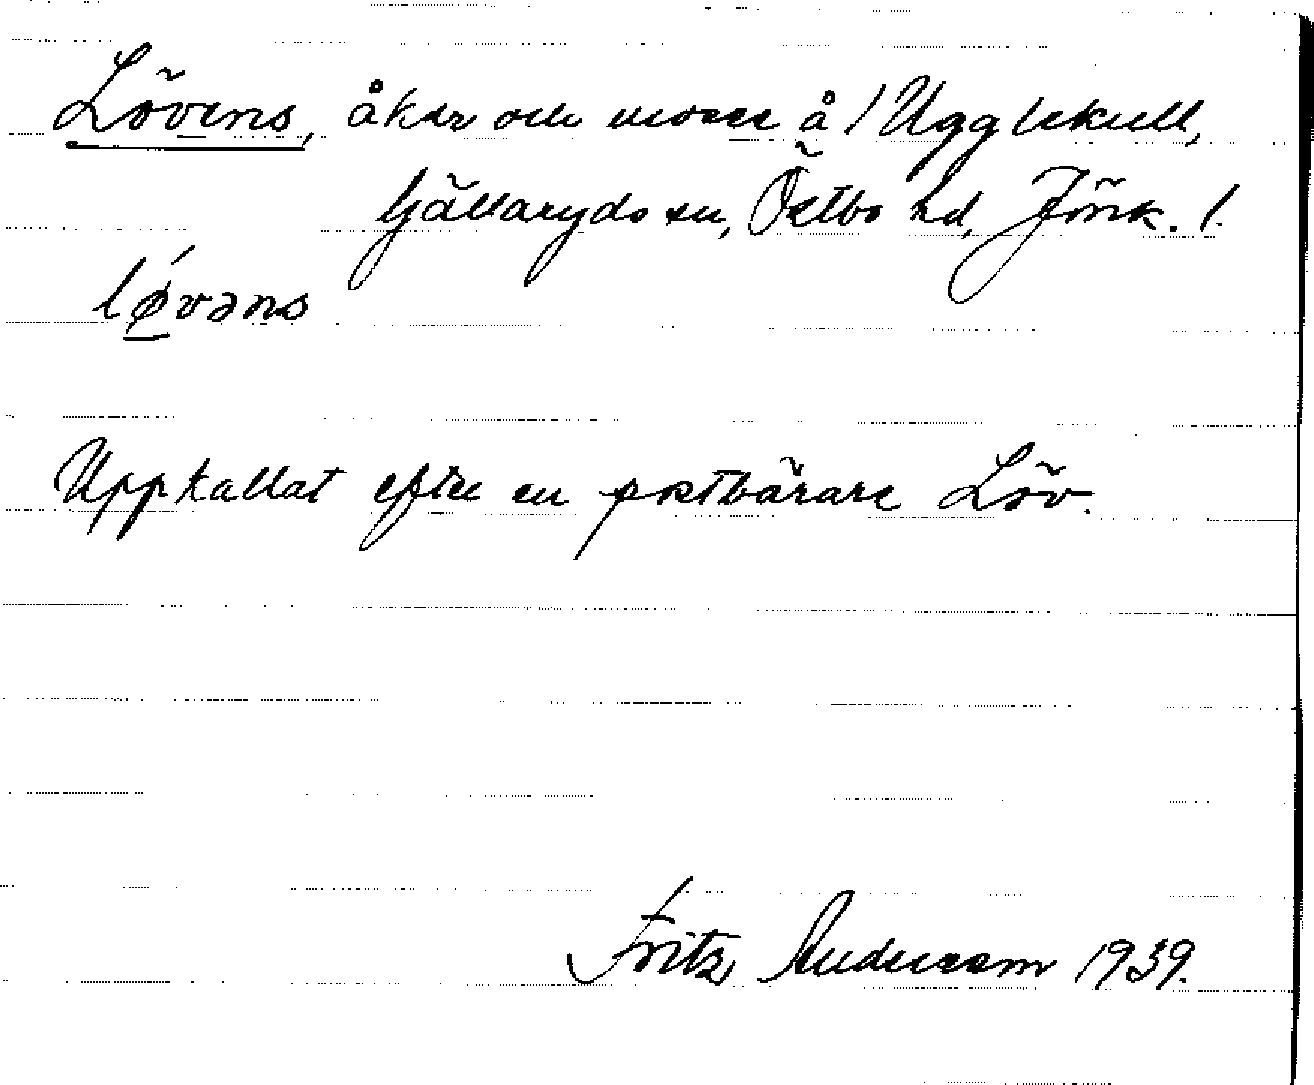 Lövens, åker och mosse å /Ugglekull,
Gällaryds sn, Östbo hd, Jönk. l.
lǿvəns
Uppkallat efter en postbärare Löv.
Fritz Anderson 1939.